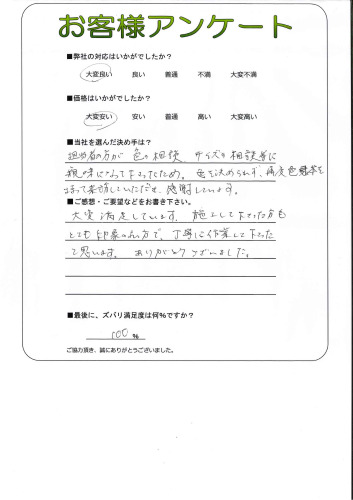 お客様アンケート
■弊社の対応はいかがでしたか?
大変良い 良い 普通 不満 大変不満
■価格はいかがでしたか?
大変安い 安い 普通 高い 大変高い
■当社を選んだ決め手は?
担当者の方が 色の相談、サイズの相談等に
親味になって下さったため。色を決められず、再度色見本を
持って来訪していただき、感謝しています。
■ご感想・ご要望などをお書き下さい。
大変満足しています。施工して下さった方も
とても印象のよい方で、丁寧に作業して下さった
と思います。ありがとうございました。
■最後に、ズバリ満足度は何%ですか?
100 %
ご協力頂き、誠にありがとうございました。